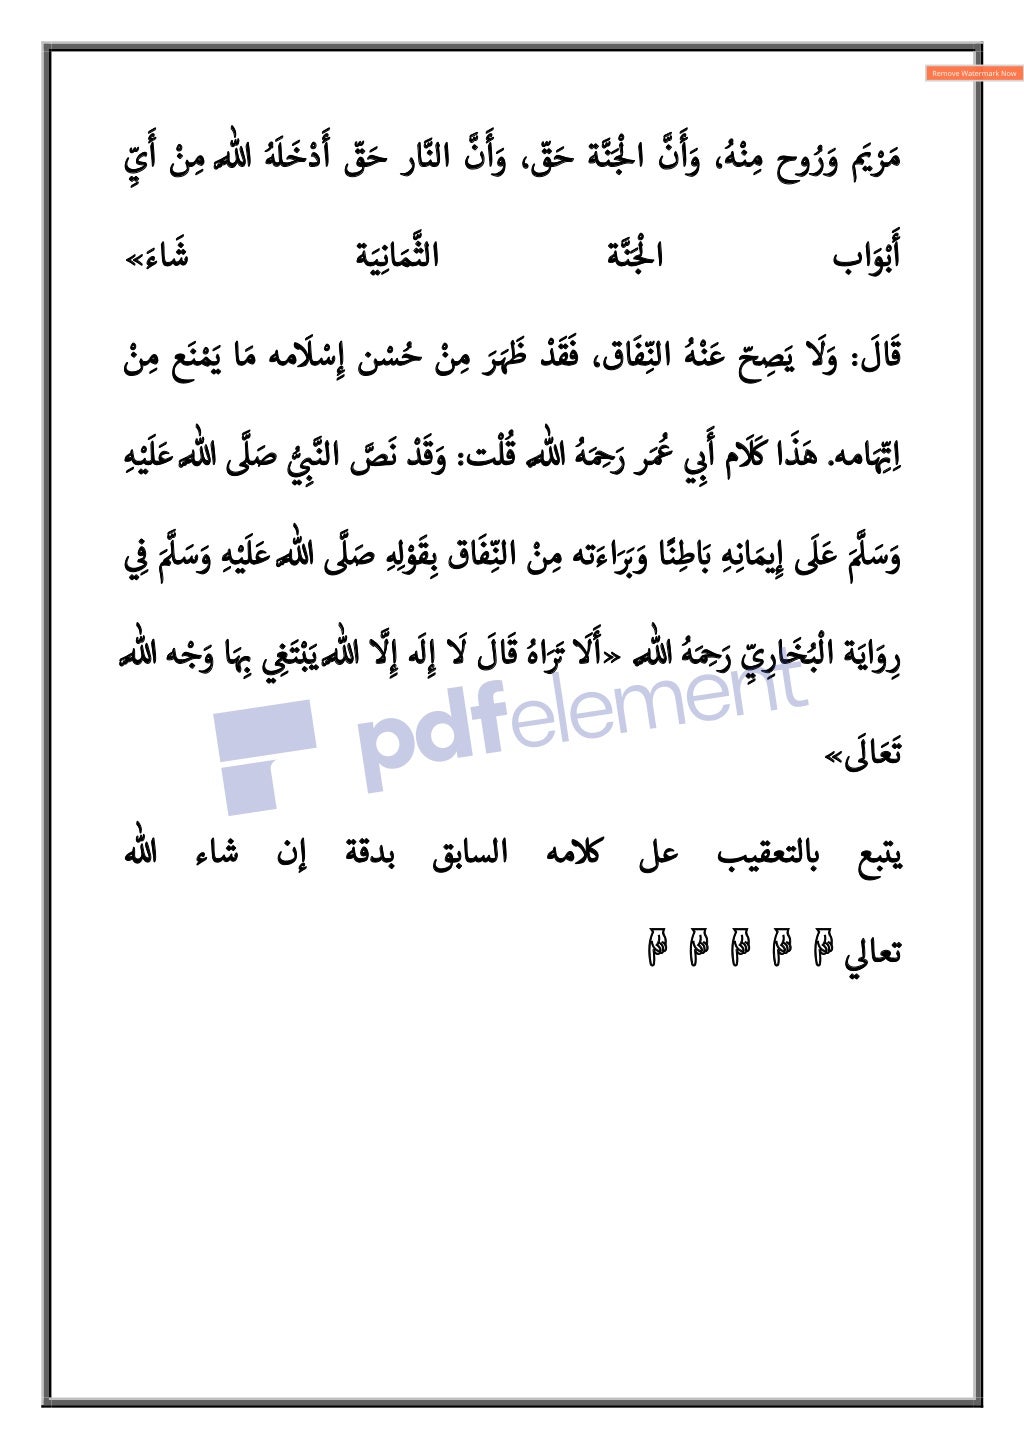 Remove Watermark Now
مَرْيَم وَرُوح مِنْهُ، وَأَنَّ الْجَنَّة حَقّ، وَأَنَّ النَّار حَقّ أَدْخَلَهُ اللَّه مِنْ أَيِّ
أَبْوَاب الْجَنَّة الثَّمَانِيَة شَاءَ»
قَالَ: وَلَا يَصِحّ عَنْهُ النِّفَاق، فَقَدْ ظَهَرَ مِنْ حُسْن إِسْلَامه مَا يَمْنَع مِنْ
اِتِّهَامه. هَذَا كَلَام أَبِي عُمَر رَحِمَهُ اللَّه قُلْت: وَقَدْ نَصَّ النَّبِيُّ صَلَّى اللَّه عَلَيْهِ
وَسَلَّمَ عَلَى إِيمَانِهِ بَاطِنًا وَبَرَاءَته مِنْ النِّفَاق بِقَوْلِهِ صَلَّى اللَّه عَلَيْهِ وَسَلَّمَ فِي
رِوَايَة الْبُخَارِيِّ رَحِمَهُ اللَّه «أَلَا تَرَاهُ قَالَ لَا إِلَه إِلَّا اللَّه يَبْتَغِي بِهَا وَجْه اللَّه
تَعَالَى»
pdfelement
يتبع بالتعقيب عل كلامه السابق بدقة إن شاء الله
تعالي ☟ ☟ ☟ ☟ ☟